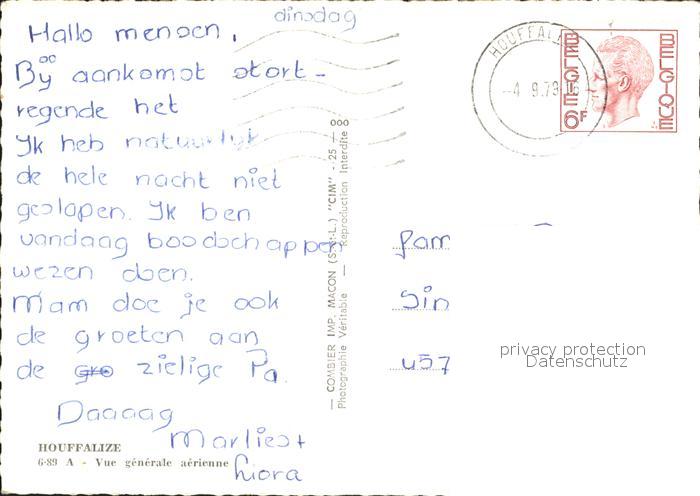 dinsdag
Hallo mensen,
Bij aankomst stort-
regende het
Ik heb natuurlijk
de hele nacht niet
geslapen. Ik ben
vandaag boodschappen
wezen doen.
Mam doe je ook
de groeten aan
de gro zielige Pa.
Daaaag
Marlies +
Liora
HOUFFALIZE
6-89 A - Vue générale aérienne
— COMBIER IMP. MACON (S.-et-L.) "CIM" - 25 — 000
Photographie Véritable — Reproduction Interdite
HOUFFALI
-4 9.79 16
BELGIE BELGIQUE
6F
fam
Sin
u57
privacy protection
Datenschutz